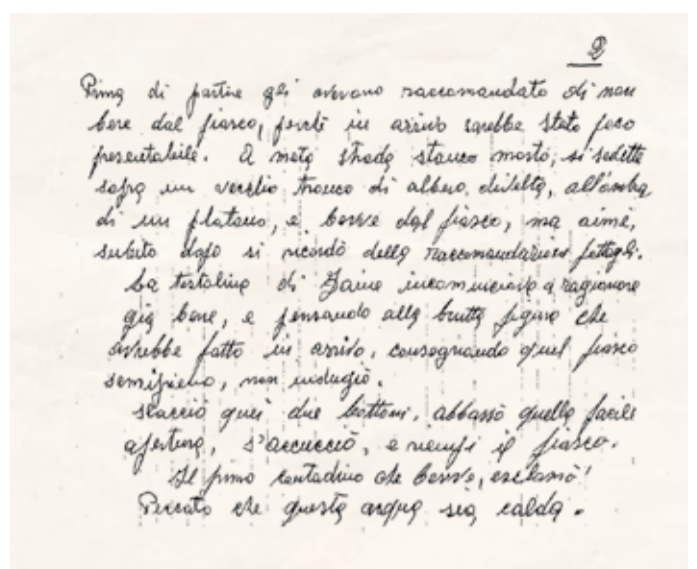 2
Prima di partire gli avevano raccomandato di non
bere dal fiasco, perché in arrivo sarebbe stato poco
presentabile. A metà strada stanco morto, si sedette
sopra un vecchio tronco di albero divelto, all'ombra
di un platano, e bevve dal fiasco, ma aimé,
subito dopo si ricordò della raccomandazione fattagli.
La testolina di Jaime incominciava a ragionare
già bene, e pensando alla brutta figura che
avrebbe fatto in arrivo, consegnando quel fiasco
semipieno, non indugiò.
Slacciò quei due bottoni, abbassò quella facile
apertura, s'accucciò, e riempì il fiasco.
Il primo contadino che bevve, esclamò!
Peccato che questa acqua sia calda.